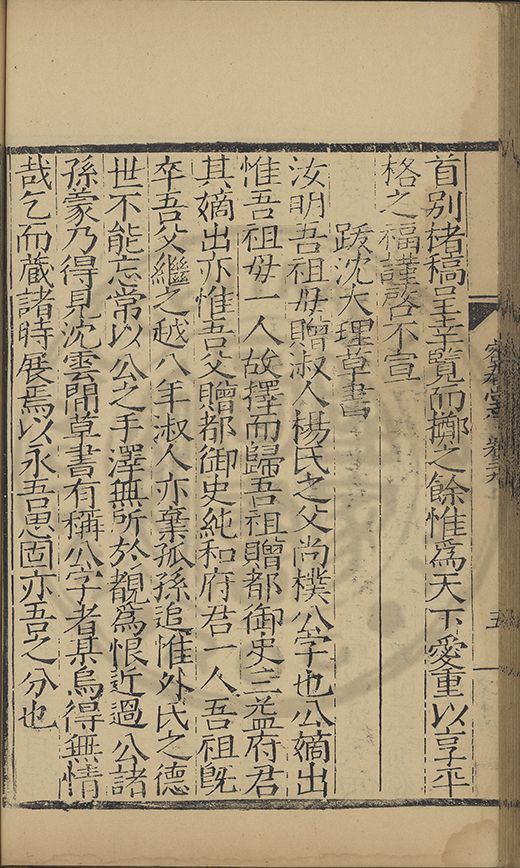 首别楮稿呈幸覧而擲之餘惟爲天下愛重以享平
格之福謹啓不宣
跋沈大理草書
汝明吾祖母贈淑人楊氏之父尚樸公字也公嫡出
惟吾祖母一人故擇而歸吾祖贈都御史三益府君
其嫡出亦惟吾父贈都御史純和府君一人吾祖旣
卒吾父繼之越八年淑人亦棄孤孫追惟外氏之德
世不能忘常以公之手澤無所於覩爲恨近過公諸
孫蒙乃得見沈雲間草書有稱公字者某烏得無情
哉乞而蔵諸時展焉以永吾思固亦吾之分也
五